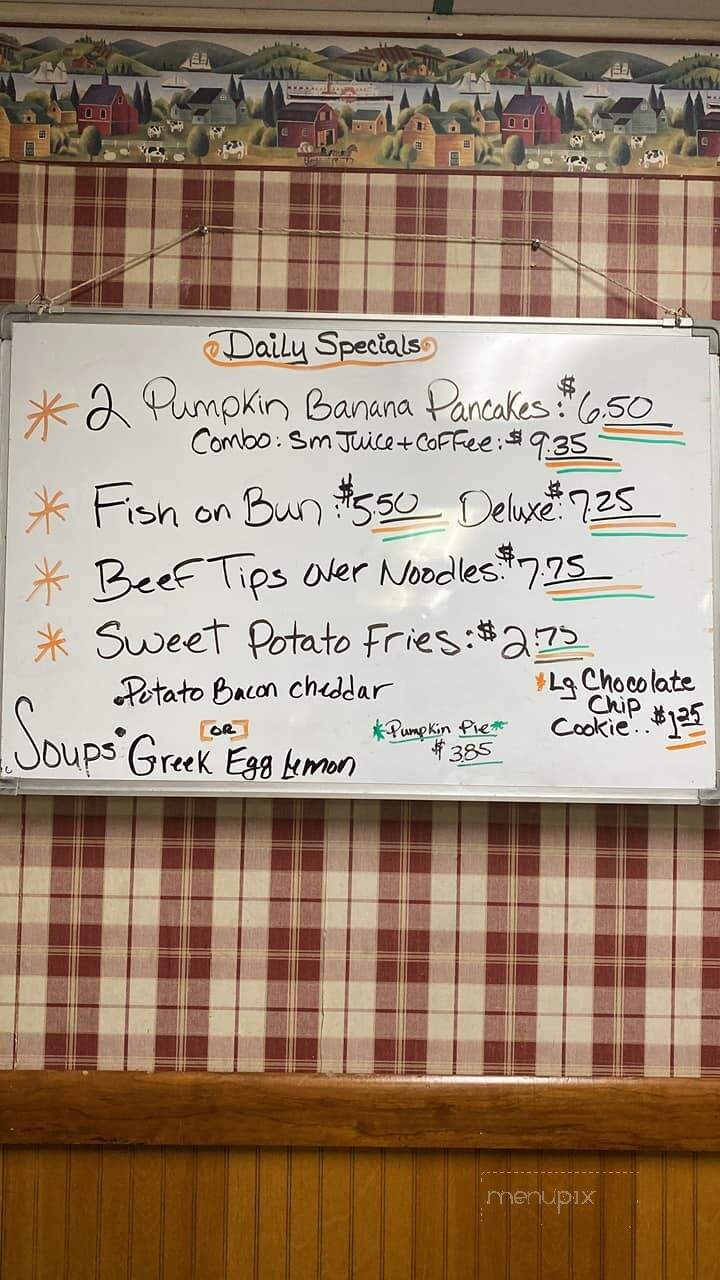 Daily Specials
2 Pumpkin Banana Pancakes: $6.50
Combo: Sm Juice + Coffee: $9.35
Fish on Bun: $5.50 Deluxe: $7.25
Beef Tips over Noodles: $7.75
Sweet Potato Fries: $2.75
Potato Bacon cheddar
OR
Soups: Greek Egg Lemon
*Pumpkin Pie*
$3.85
*Lg Chocolate
Chip
Cookie.. $1.25
menupix